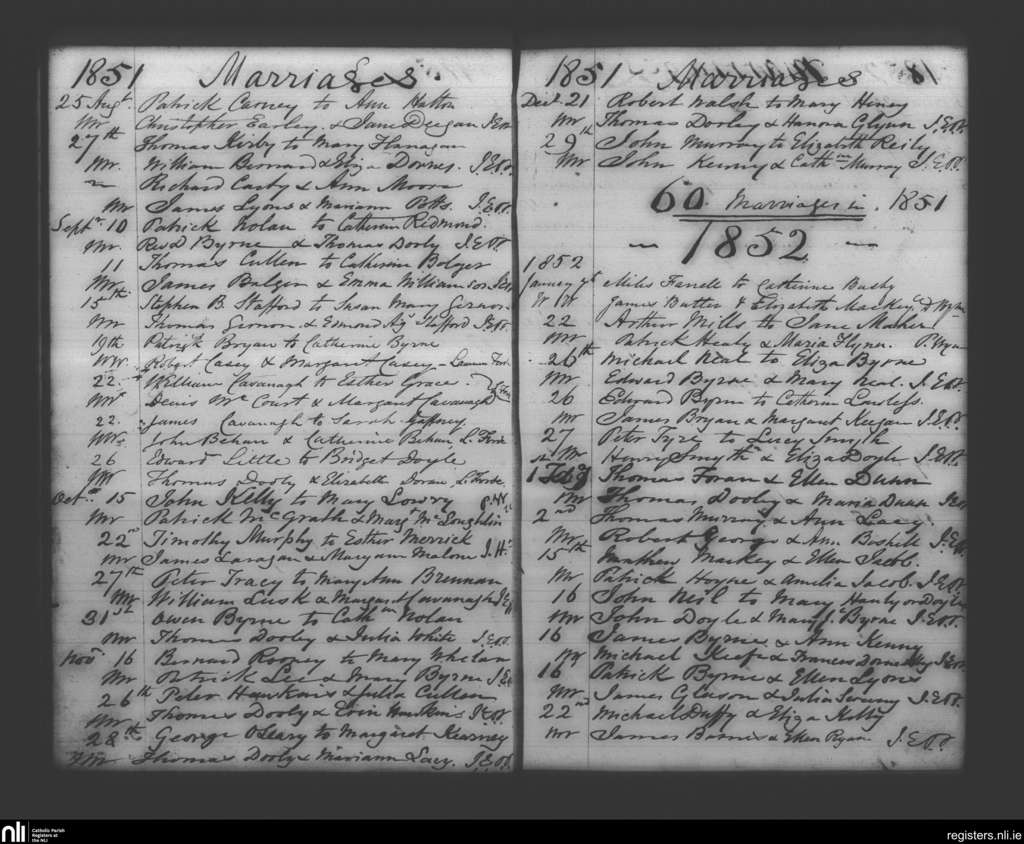 1851 Marriages.
25 Augt. Patrick Carney to Ann Hatton
Wr. Christopher Earley & Jane Deegan
27th Thomas Kirby to Mary Flanagan
Wr. William Bernard & Eliza Downes. J.E.
Richard Casby & Ann Moore
Wr James Lyons & Mariann Potts. J.E.
Septr. 10 Patrick Nolan to Catherin Redmond.
Wr. Revd Byrne & Thomas Dooly J.E.
11 Thomas Cullen to Catherine Bolger
Wr. James Balgen & Emma Williamson
15th. Stephen B. Stafford to Susan Mary Gernon
Wr Thomas Gernon & Edmond Stafford
19th Patrick Bryan to Catherine Byrne
Wr. Robert Casey & Margaret Casey
22. William Cavanagh to Esther Grace.
Wr. Denis McCourt & Margaret Cavanagh
22. James Cavanagh to Sarah Gaffney
Wr. John Behan & Catherine Behan, L. Forde
26 Edward Little to Bridget Doyle
Wr Thomas Dooly & Elizabeth Doran L. Forde
Octr. 15 John Kelly to Mary Lowry
Wr Patrick McGrath & Margt McLoughlin
22nd Timothy Murphy to Esther Merrick
Wr James Laragan & Maryann Malone J.H.
27th Peter Tracy to Mary Ann Brennan
Wr William Lusk & Margaret Cavanagh
31st Owen Byrne to Cath Nolan
Wr Thomas Dooly & Julia White J.E.
Novr. 16 Bernard Rooney to Mary Whelan
Wr Patrick Lee & Mary Byrne
26th Peter Hawkins & Julia Cullen
Wr Thomas Dooly & Hawkins
28th George O'Leary to Margaret Kearney
Wr Thomas Dooly & Mariann Lacy. J.E.
1851 Marriages 81
Decr. 21 Robert Walsh to Mary Heney
Wr Thomas Dooley & Hanora Glynn J.E.
29th John Murray to Elizabeth Reily
Wr John Kenny & Cathne Murray J.E.
60. Marriages in 1851
1852
1852
January Miles Farrell to Catherine Busby
James Butler & Elizabeth Mackey
22 Arthur Mills to Jane Maher
Wr Patrick Healy & Maria Flynn P. Ryan
26th Michael Neal to Eliza Byrne
Wr Edward Byrne & Mary Neal. J.E.
26 Edward Byrne to Catherine Lawless.
Wr James Bryan & Margaret Keegan J.E.
27 Peter Tyre to Lucy Smyth
Wr Henry Smyth & Eliza Doyle J.E.
1 Feby Thomas Foran & Ellen Dunn
Wr Thomas Dooly & Maria Dunn
2nd Thomas Murray & Ann Lacy
Wr Robert George & Ann
15th Mathew Mackey & Ellen Jacob.
Wr Patrick Hoyne & Amelia Jacob. J.E.
16 John Neil to Mary Hanly or Doyle
Wr John Doyle & Mary J. Byrne J.E.
16 James Byrne & Ann Kenny
Wr Michael Keefe & Frances
16 Patrick Byrne & Ellen Lyons
Wr James Gleeson & Julia J.E.
22nd Michael Duffy & Eliza Kelly
Wr James & Ellen Ryan J.E.
nli Catholic Parish
Registers at
the NLI
registers.nli.ie